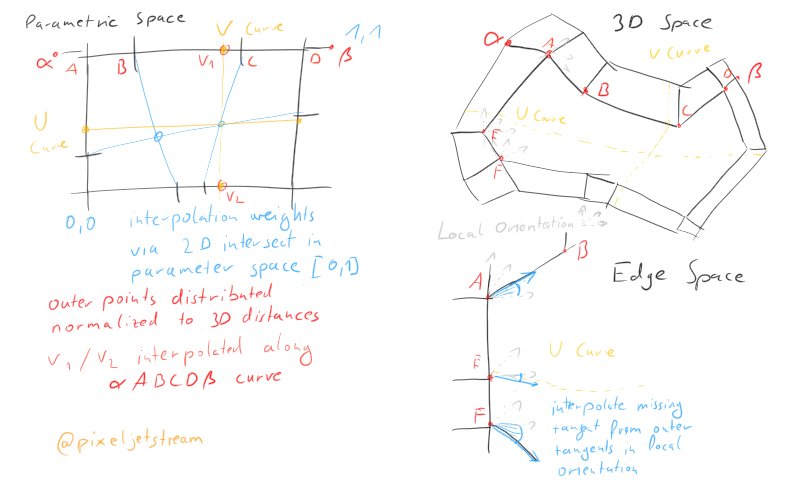 Parametric Space
V Curve
1,1
α
A
B
V1
C
D
β
U
Curve
V2
0,0
interpolation weights
via 2D intersect in
parameter space [0,1]
outer points distributed
normalized to 3D distances
V1/V2 interpolated along
α A B C D β curve
@pixeljetstream
3D Space
V Curve
α
A
B
C
D
β
U Curve
E
F
Local Orientation
Edge Space
A
B
E
U Curve
F
interpolate missing
tangat from outer
tangents in local
orientation